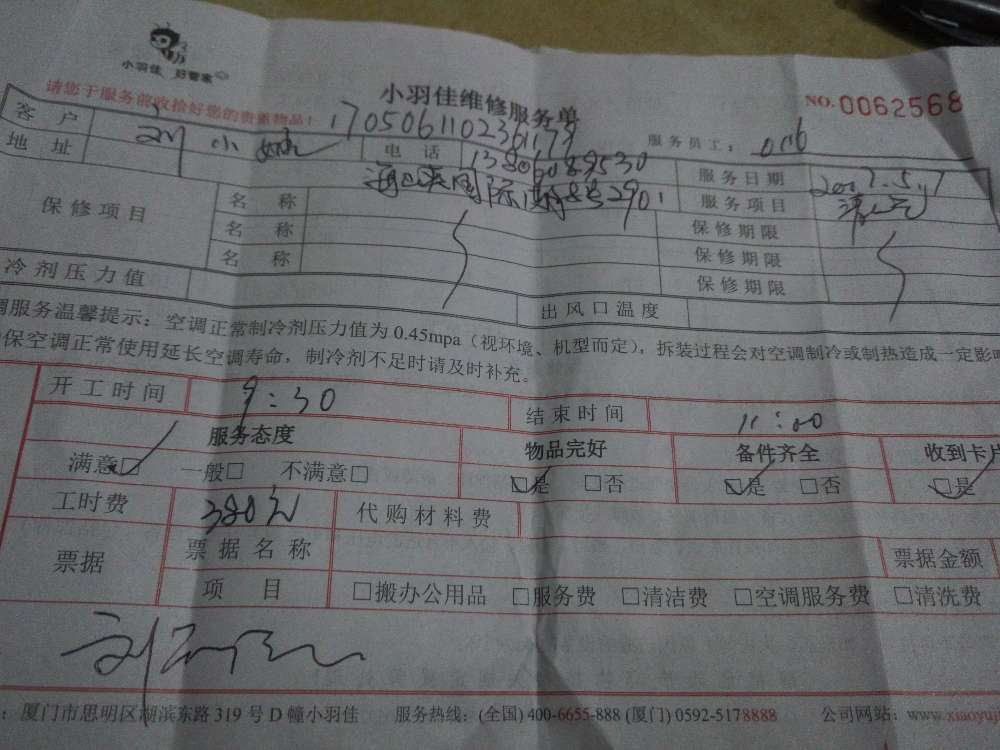 小羽佳 好管家
请您于服务前收拾好您的贵重物品!
小羽佳维修服务单
NO.0062568
1705061102361179
客户 刘小 电话 13806089530 服务员工: 016
地址 国际 2901 服务日期
保修项目 名称 服务项目
名称 保修期限
名称 保修期限
保修期限
冷剂压力值 出风口温度
调服务温馨提示:空调正常制冷剂压力值为0.45mpa(视环境、机型而定),拆装过程会对空调制冷或制热造成一定影响
保空调正常使用延长空调寿命,制冷剂不足时请及时补充。
开工时间 9:30 结束时间 11:00
服务态度 物品完好 备件齐全 收到卡片
满意□ 一般□ 不满意□ □是 □否 □是 □否 □是
工时费 380元 代购材料费
票据 票据名称 票据金额
项目 □搬办公用品 □服务费 □清洁费 □空调服务费 □清洗费
:厦门市思明区湖滨东路319号D幢小羽佳 服务热线:(全国)400-6655-888(厦门)0592-5178888 公司网站:www.xiaoyuj